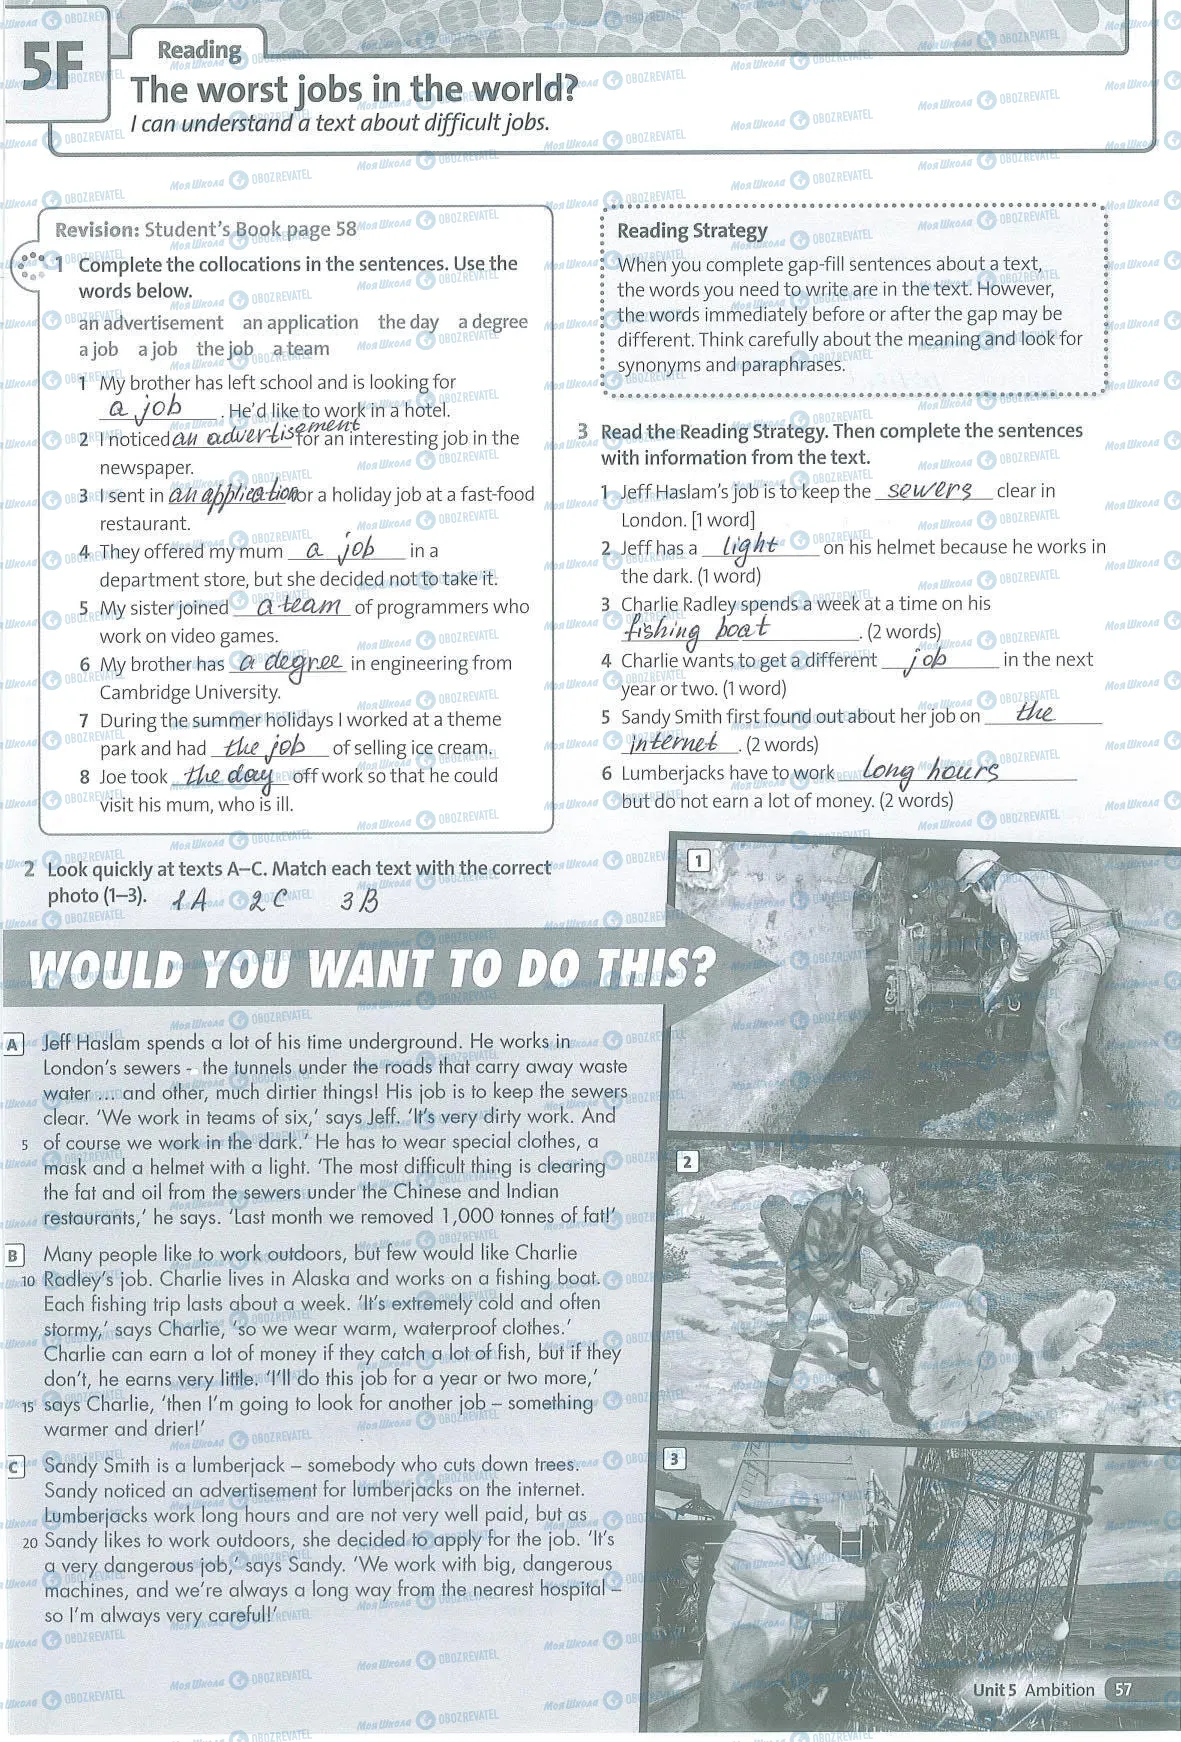 5F
Reading
The worst jobs in the world?
I can understand a text about difficult jobs.
Revision: Student's Book page 58
1 Complete the collocations in the sentences. Use the
words below.
an advertisement an application the day a degree
a job a job the job a team
1 My brother has left school and is looking for
a job. He'd like to work in a hotel.
2 I noticed an advertisement for an interesting job in the
newspaper.
3 I sent in an application for a holiday job at a fast-food
restaurant.
4 They offered my mum a job in a
department store, but she decided not to take it.
5 My sister joined a team of programmers who
work on video games.
6 My brother has a degree in engineering from
Cambridge University.
7 During the summer holidays I worked at a theme
park and had the job of selling ice cream.
8 Joe took the day off work so that he could
visit his mum, who is ill.
2 Look quickly at texts A–C. Match each text with the correct
photo (1–3). 1A 2C 3B
Reading Strategy
When you complete gap-fill sentences about a text,
the words you need to write are in the text. However,
the words immediately before or after the gap may be
different. Think carefully about the meaning and look for
synonyms and paraphrases.
3 Read the Reading Strategy. Then complete the sentences
with information from the text.
1 Jeff Haslam's job is to keep the sewers clear in
London. [1 word]
2 Jeff has a light on his helmet because he works in
the dark. (1 word)
3 Charlie Radley spends a week at a time on his
fishing boat. (2 words)
4 Charlie wants to get a different job in the next
year or two. (1 word)
5 Sandy Smith first found out about her job on the
internet. (2 words)
6 Lumberjacks have to work long hours
but do not earn a lot of money. (2 words)
WOULD YOU WANT TO DO THIS?
A Jeff Haslam spends a lot of his time underground. He works in
London's sewers - the tunnels under the roads that carry away waste
water ... and other, much dirtier things! His job is to keep the sewers
clear. 'We work in teams of six,' says Jeff. 'It's very dirty work. And
5 of course we work in the dark.' He has to wear special clothes, a
mask and a helmet with a light. 'The most difficult thing is clearing
the fat and oil from the sewers under the Chinese and Indian
restaurants,' he says. 'Last month we removed 1,000 tonnes of fat!'
B Many people like to work outdoors, but few would like Charlie
10 Radley's job. Charlie lives in Alaska and works on a fishing boat.
Each fishing trip lasts about a week. 'It's extremely cold and often
stormy,' says Charlie, 'so we wear warm, waterproof clothes.'
Charlie can earn a lot of money if they catch a lot of fish, but if they
don't, he earns very little. 'I'll do this job for a year or two more,'
15 says Charlie, 'then I'm going to look for another job – something
warmer and drier!'
C Sandy Smith is a lumberjack – somebody who cuts down trees.
Sandy noticed an advertisement for lumberjacks on the internet.
Lumberjacks work long hours and are not very well paid, but as
20 Sandy likes to work outdoors, she decided to apply for the job. 'It's
a very dangerous job,' says Sandy. 'We work with big, dangerous
machines, and we're always a long way from the nearest hospital –
so I'm always very careful!'
1
2
3
Unit 5 Ambition 57
Моя Школа OBOZREVATEL